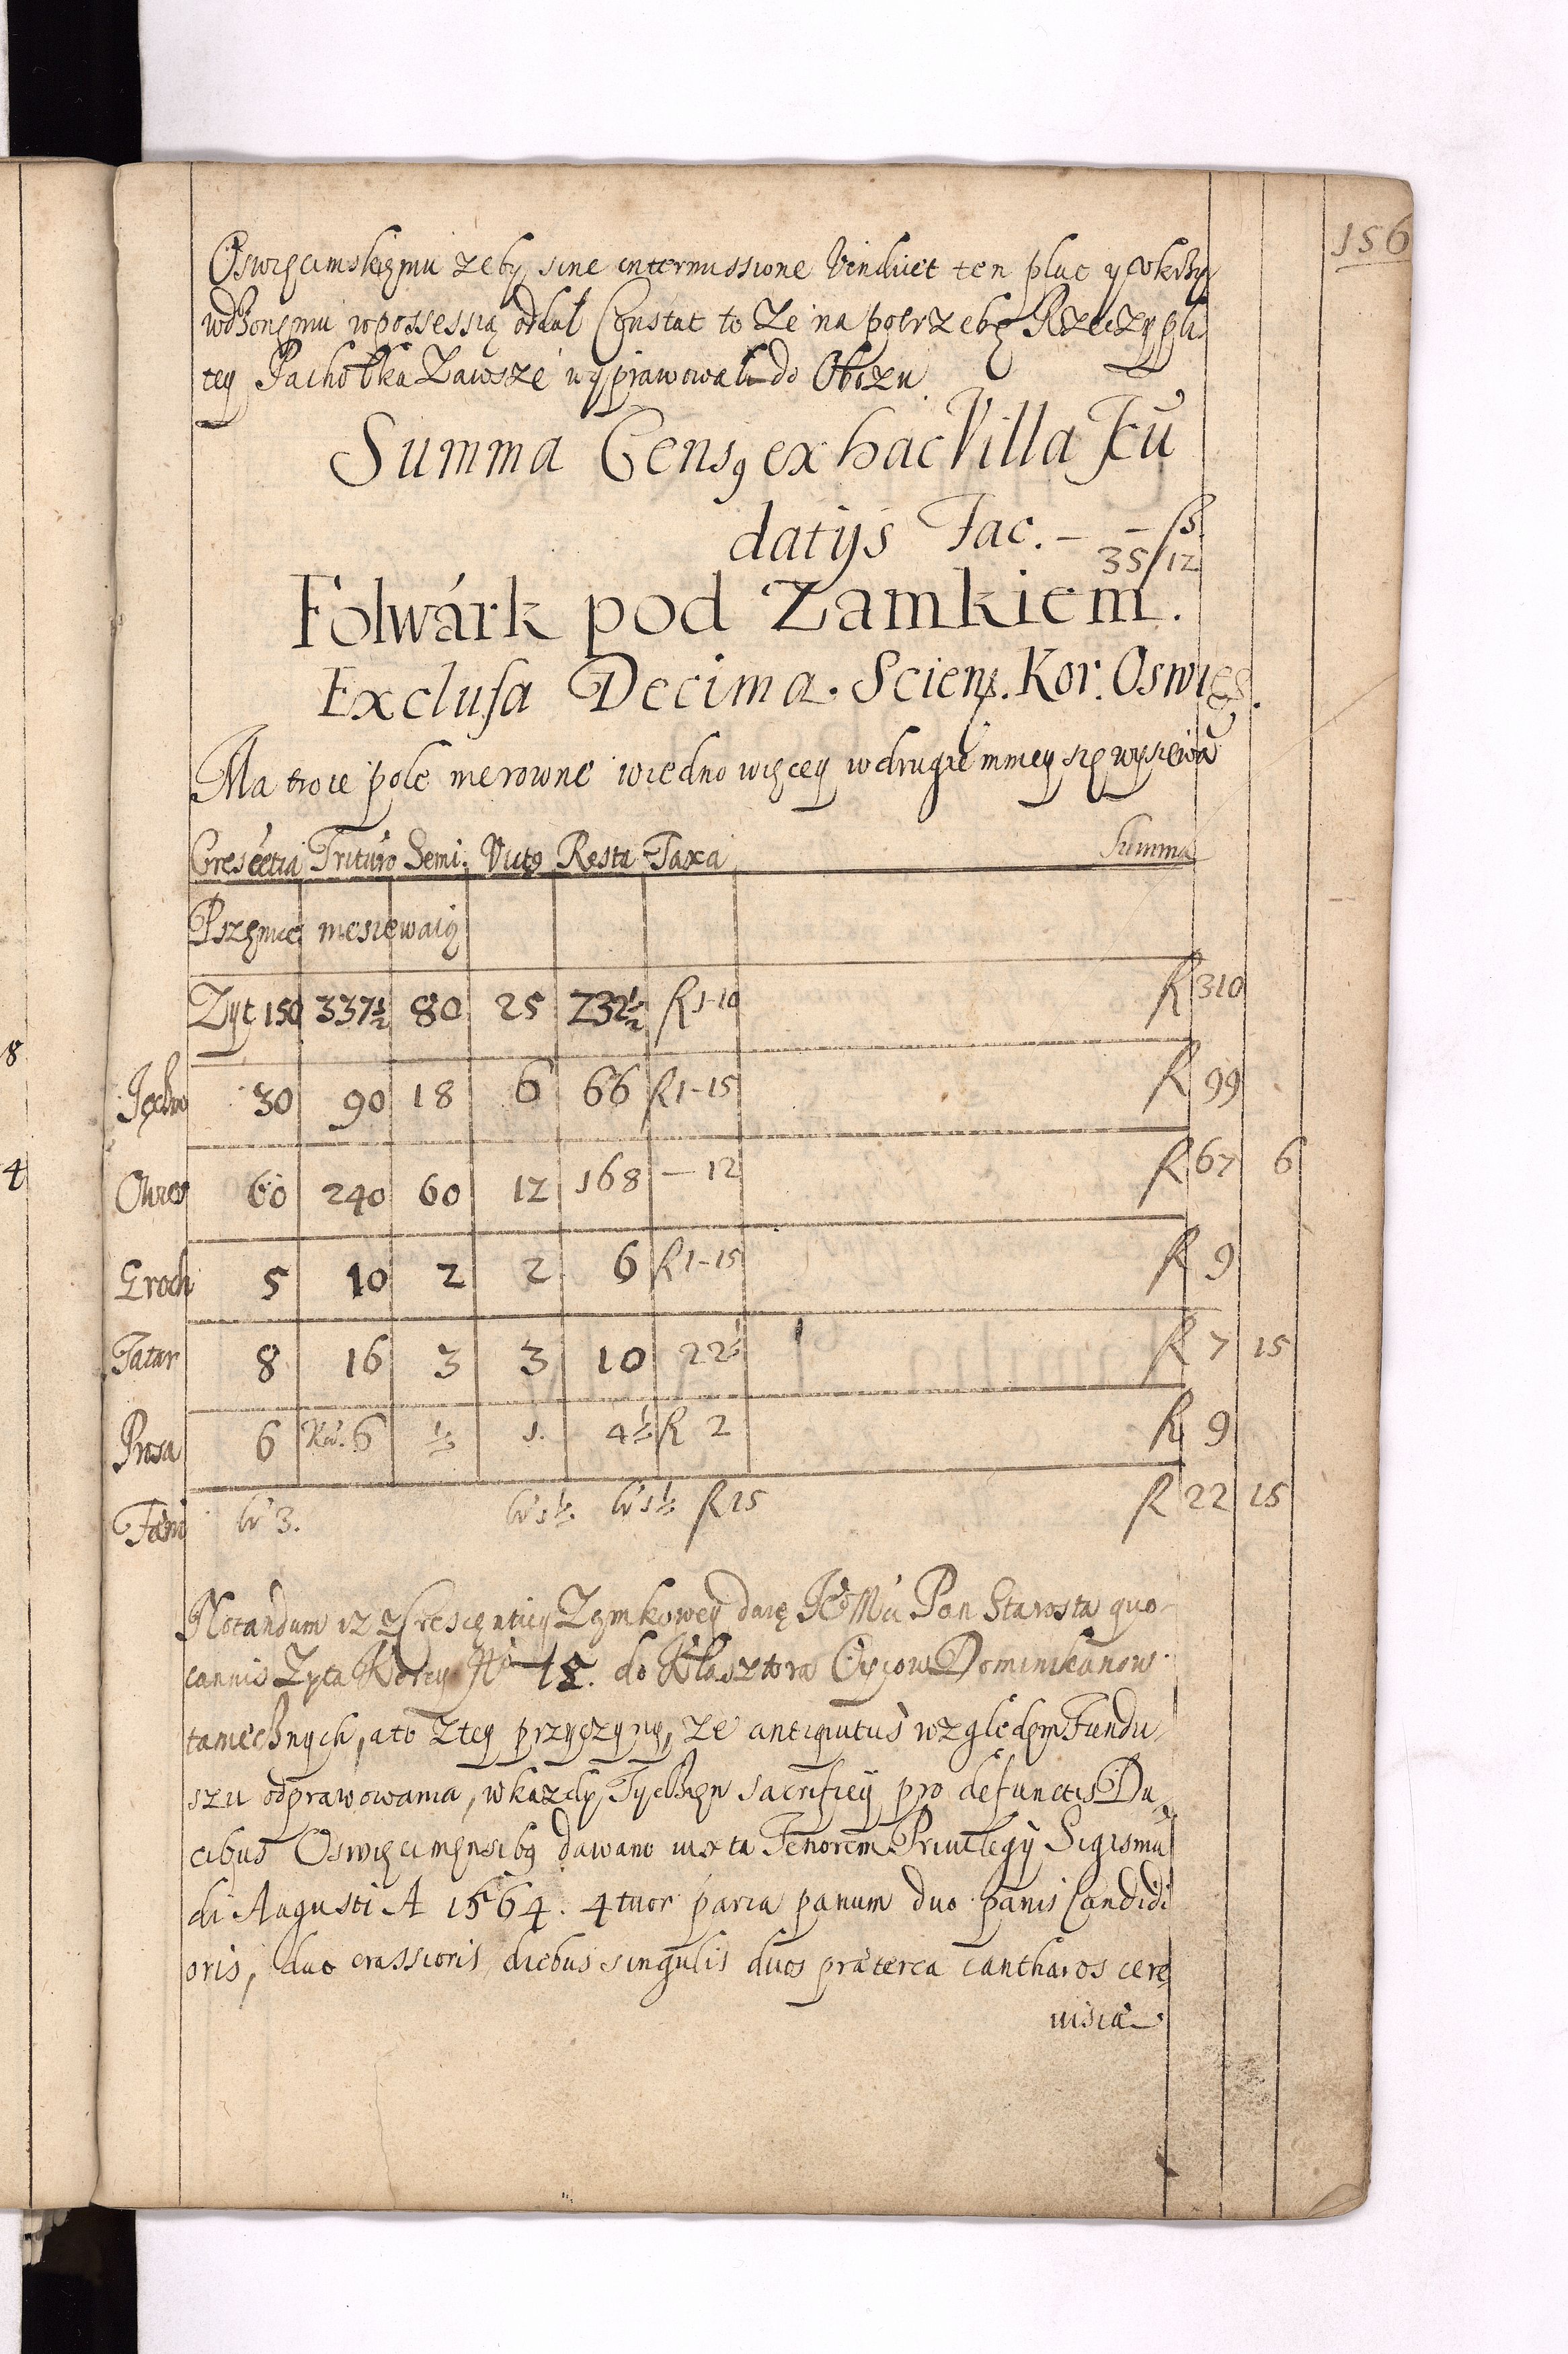 156
Oswięcimskięmu zeby sine intermissione Vendicet ten plac y pokrzy
wdzonęmu w possessią oddał Constat to ze na potrzebę Rzeczypli
tey Pachołka Zawsze wyprawowali do Obozu
Summa Censꝯ ex hac Villa Feū
datijs Fac. — — ß 35/12
Folwárk pod Zamkiem.
Exclusa Decima. Sciens. Kor. Oswięć.
Ma troie pole nierowne w iedno więcey w drugie mniey się wysiewa
Cresćetia Trituro Semi. Victꝯ Resta Taxa Summa
Pszęnice niesiewaią
Zyt 150 337½ 80 25 232½ R 1-10 R 310
Jęchm 30 90 18 6 66 R 1-15 R 99
Owies 60 240 60 12 168 — 12 R 67 6
Groch 5 10 2 2 6 R 1-15 R 9
Tatar 8 16 3 3 10 22½ R 7 15
Prosa 6 Kor. 6 ½ 1. 4½ R 2 R 9
Fæni 3. 1½ 1½ R 15 R 22 15
Notandum iz z Crescęntiey Zamkowey daię Je Mć Pan Starosta quo-
tannis Zyta Korcy No 18. do Klasztora Oycow Dominikanow
tamecznych, a to z tey przyczyny, ze antiquitus względem Fundu
szu odprawowania, w kazdy Tydzięn sacrificij pro defunctis Du
cibus Oswięcimęnsibꝯ dawano iuxta Tenorem Privilegij Sigismū
di Augusti A 1564. 4tuor paria panum duo panis Candidi
oris, duo crassioris diebus singulis duos præterea cantharos cere
uisiæ